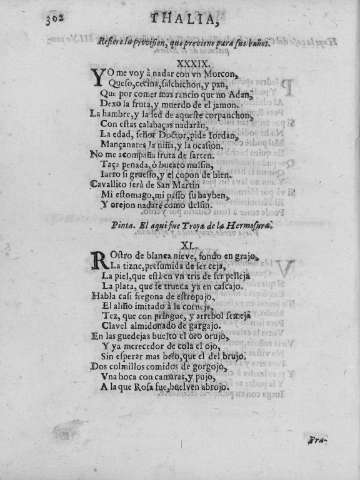 302
THALIA,
Refiere la provision, que previene para sus baños.
XXXIX.
YO me voy à nadar con vn Morcon,
Queso, cecina, salchichon, y pan,
Que por comer mas rancio que no Adan,
Dexo la fruta, y muerdo de el jamon.
La hambre, y la sed de aqueste corpanchon,
Con estas calabaças nadaràn,
La edad, señor Doctor, pide Iordan,
Mançanares la niña, y la ocasion.
No me acompaña fruta de sarten,
Taça penada, ò bucaro malsin,
Iarro si gruesso, y el copon de bien.
Cavallito serà de San Martin
Mi estomago, mi passo su bayben,
Y orejon nadarè como delfin.
Pinta. El aqui fue Troya de la Hermosura.
XL.
ROstro de blanca nieve, fondo en grajo,
La tizne, presumida de ser ceja,
La piel, que està en vn tris de ser pelleja
La plata, que se trueca ya en cascajo.
Habla casi fregona de estropajo,
El aliño imitado à la corneja,
Tez, que con pringue, y arrebol semeja
Clavel almidonado de gargajo.
En las guedejas buelto el oro orujo,
Y ya merecedor de cola el ojo,
Sin esperar mas beso, que el del brujo.
Dos colmillos comidos de gorgojo,
Vna boca con camaras, y pujo,
A la que Rosa fue, buelven abrojo.